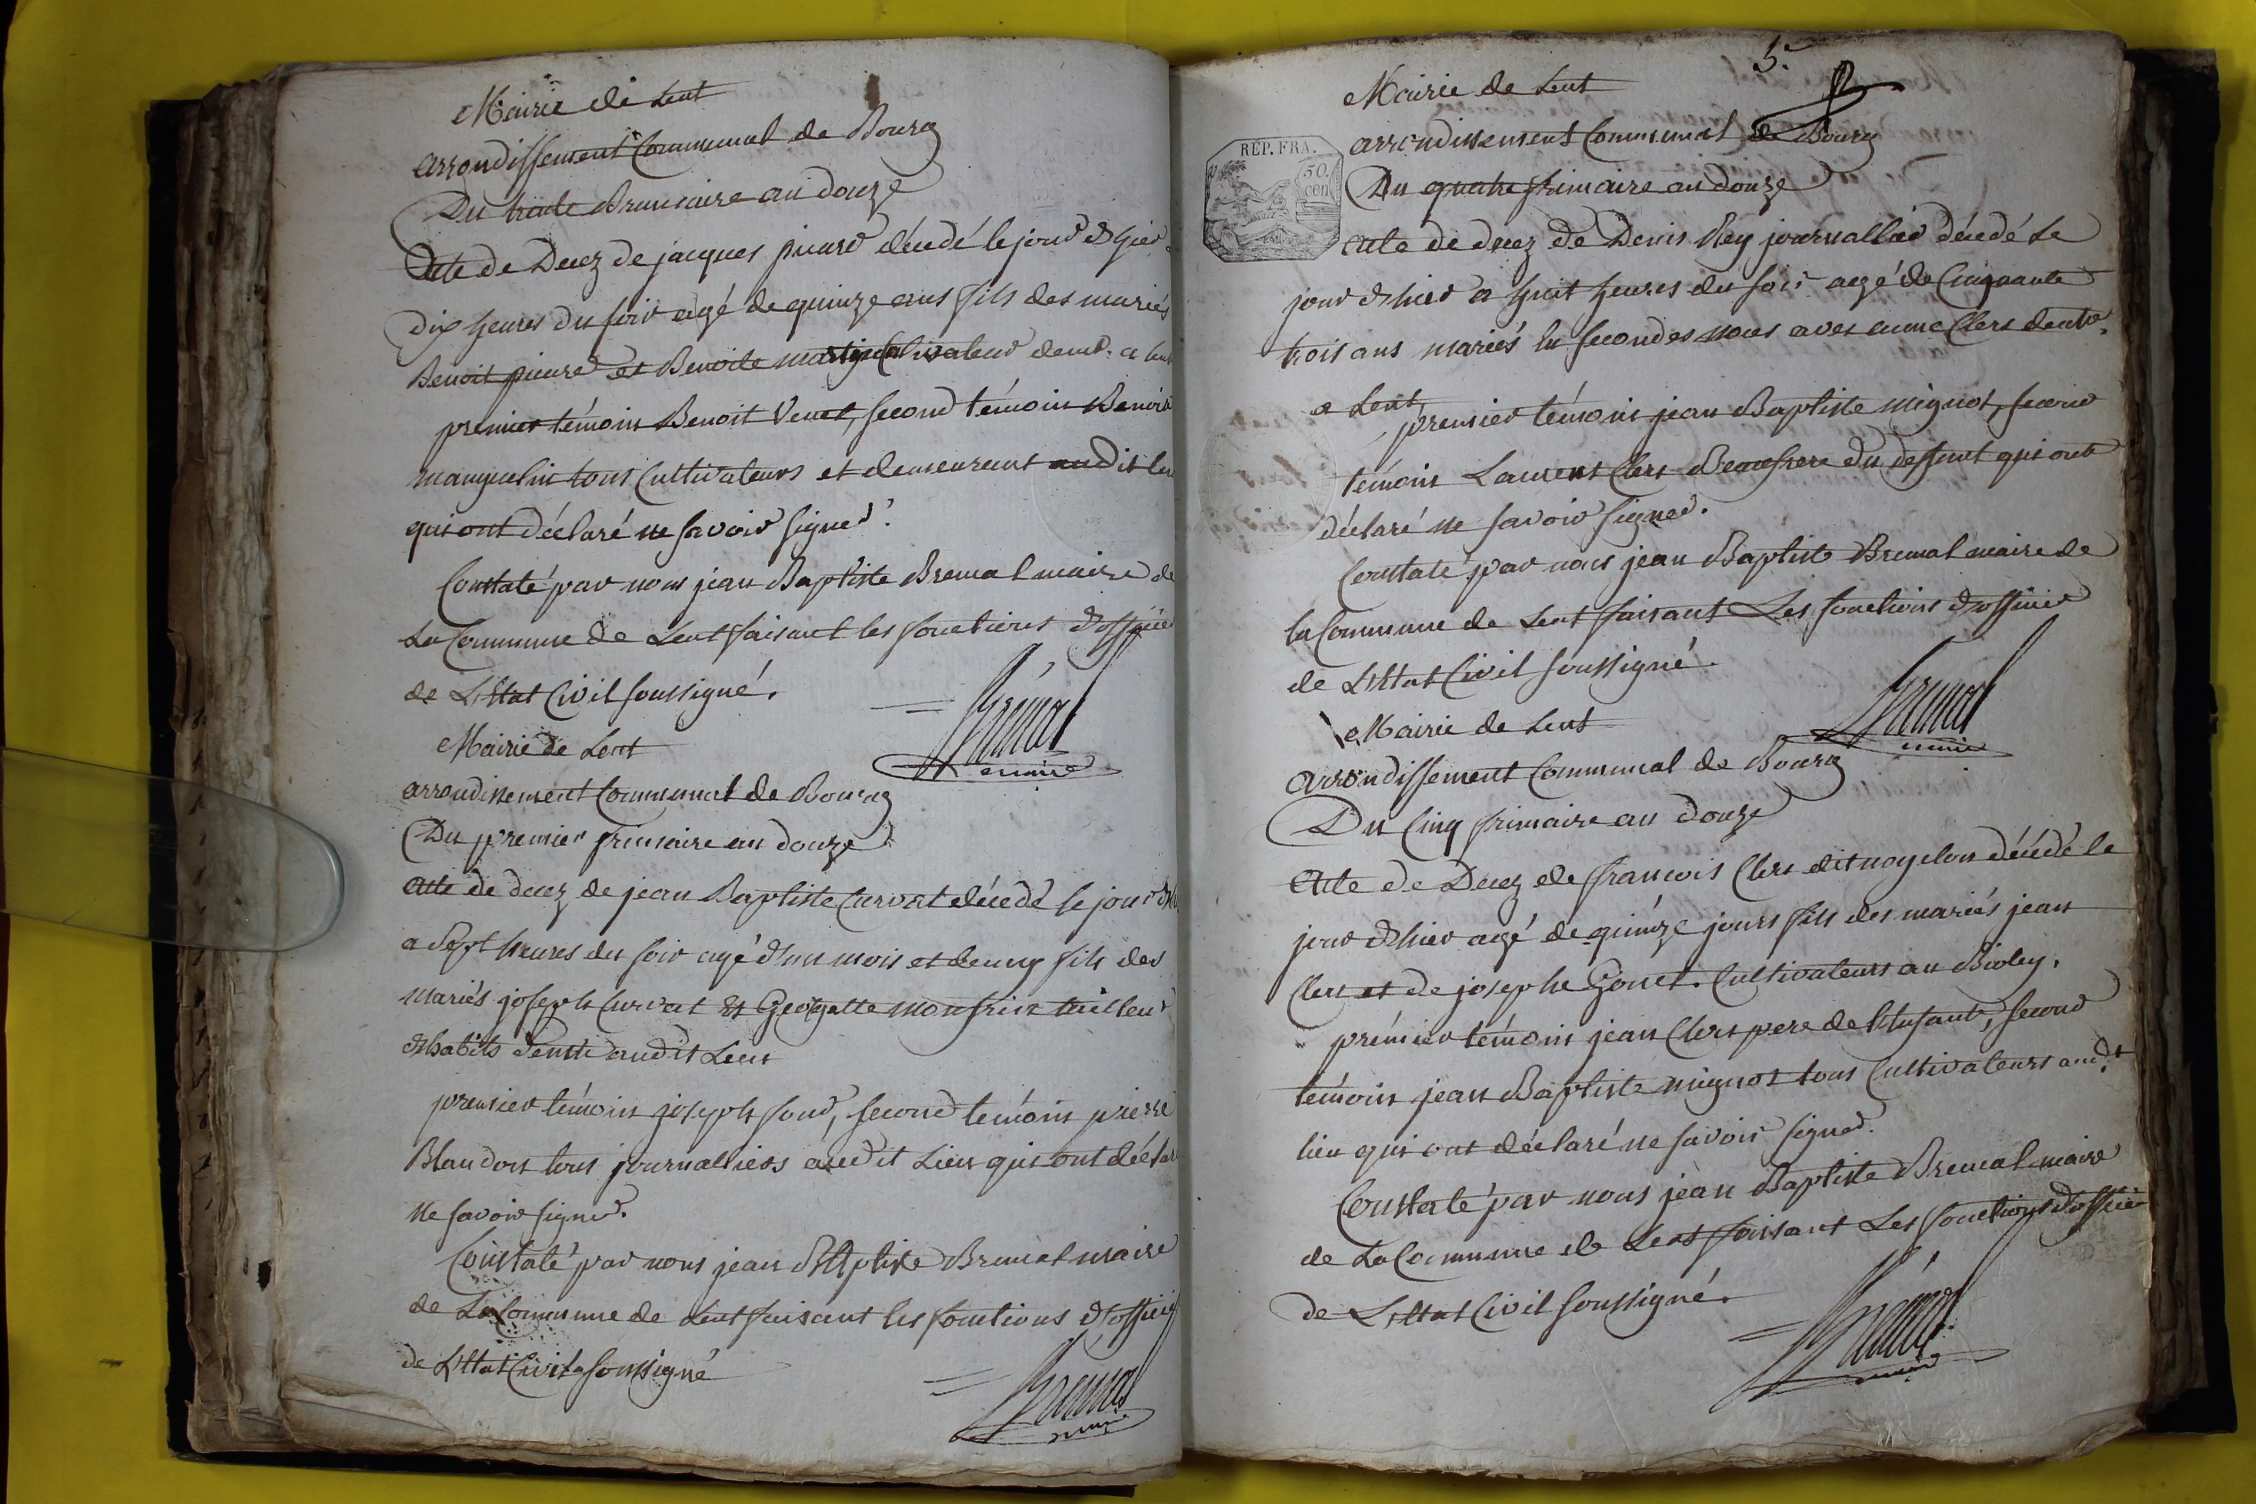 Mairie de Lent
arrondissement Communal de Bourg
Du trente Brumaire an douze
Acte de Decez de jacques picard décedé le jour d'hier a
dix heures du soir agé de quinze ans fils des mariés
Benoit picard et Benoite Cultivateur demt. a Lent
premier témoin Benoit Venet, second témoin Benoit
manguelin tous Cultivateurs et demeurant audit lieu
qui ont déclaré ne savoir signer.
Constaté par nous jean Baptiste Bremal maire de
La Commune de Lent faisant les fonctions d'officier
de L'Etat Civil soussigné.
Brémal
maire
Mairie de Lent
arrondissement Communal de Bourg
Du premier frimaire an douze
acte de decez de jean Baptiste Curvat décedé le jour d'hier
a sept heures du soir agé d'un mois et demy fils des
mariés joseph Curvat et Georgette monfrin tailleur
d'habits audit Lent
premier témoin joseph four, second témoin pierre
Blandon tous journalliers audit Lieu qui ont déclaré
ne savoir signer.
Constaté par nous jean Baptiste Bremal maire
de La Commune de Lent faisant les fonctions d'officier
de L'Etat Civil soussigné
Bremal
maire
5.e
Mairie de Lent
arrondissement Communal de Bourg
REP. FRA.
50. cen
Du quatre frimaire an douze
acte de decez de Denis Rey journallier décedé le
jour d'hier a huit heures du soir agé de Cinquante
trois ans mariés en secondes noces avec anne Clerc demt.
a Lent,
premier témoin jean Baptiste mignot, second
témoin Laurent Clerc Beaufrere du deffunt qui ont
déclaré ne savoir signer.
Constaté par nous jean Baptiste Bremal maire de
la Commune de Lent faisant Les fonctions d'officier
de L'Etat Civil soussigné.
Bremal
maire
Mairie de Lent
arrondissement Communal de Bourg
Du Cinq frimaire an douze
Acte de Decez de francois Clerc dit noyelon décedé le
jour d'hier agé de quinze jours fils des mariés jean
Clerc et de josephe Gonet. Cultivateurs au Bioley.
prémier témoin jean Clerc pere de l'Enfant, second
témoin jean Baptiste mignot tous Cultivateurs audt.
lieu qui ont déclaré ne savoir signer.
Constaté par nous jean Baptiste Bremal maire
de La Commune de Lent faisant Les fonctions d'officier
de L'Etat Civil soussigné.
Brémal
maire